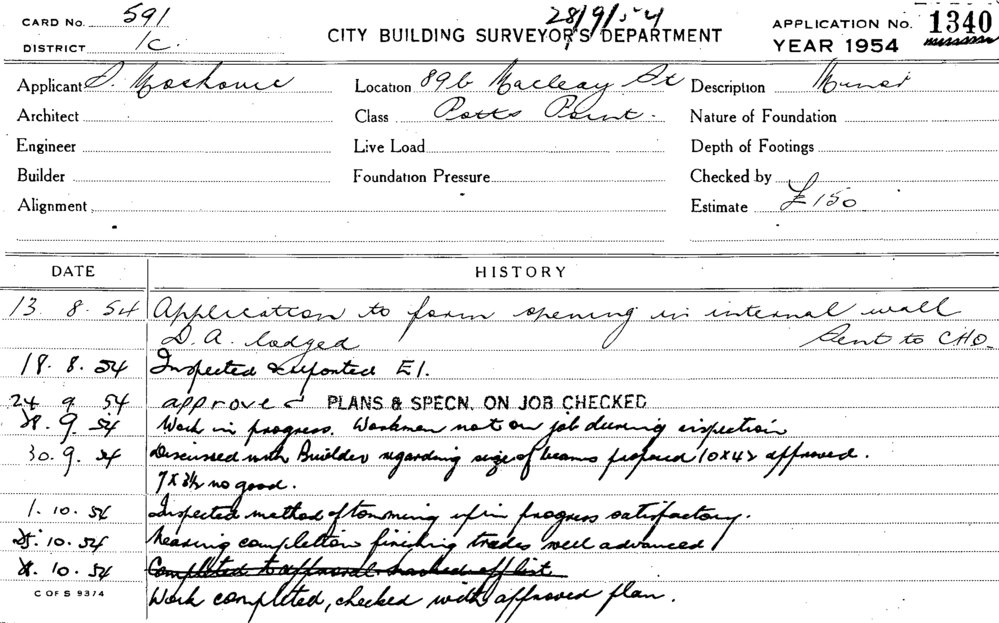 CARD No. 591
28/9/54
DISTRICT 1C.
CITY BUILDING SURVEYOR'S DEPARTMENT
APPLICATION No. 1340
YEAR 1954
Applicant Location 89b Macleay St Description
Architect Class Potts Point. Nature of Foundation
Engineer Live Load Depth of Footings
Builder Foundation Pressure Checked by
Alignment Estimate £150
DATE HISTORY
13 8. 54 Application to form opening in internal wall
D.A. lodged Sent to CHO
18. 8. 54 Inspected & reported E1.
24 9 54 approved PLANS & SPECN. ON JOB CHECKED
28. 9. 54 Work in progress. Workmen not on job during inspection
30. 9. 54 Discussed with Builder regarding size of beams 10x4½ approved.
7 x 3½ no good.
1. 10. 54 Inspected method of tomming up in progress satisfactory.
10. 54 Nearing completion finishing trades well advanced
10. 54 Completed to approval marked off list
C OF S 93/4
Work completed, checked with approved plan.